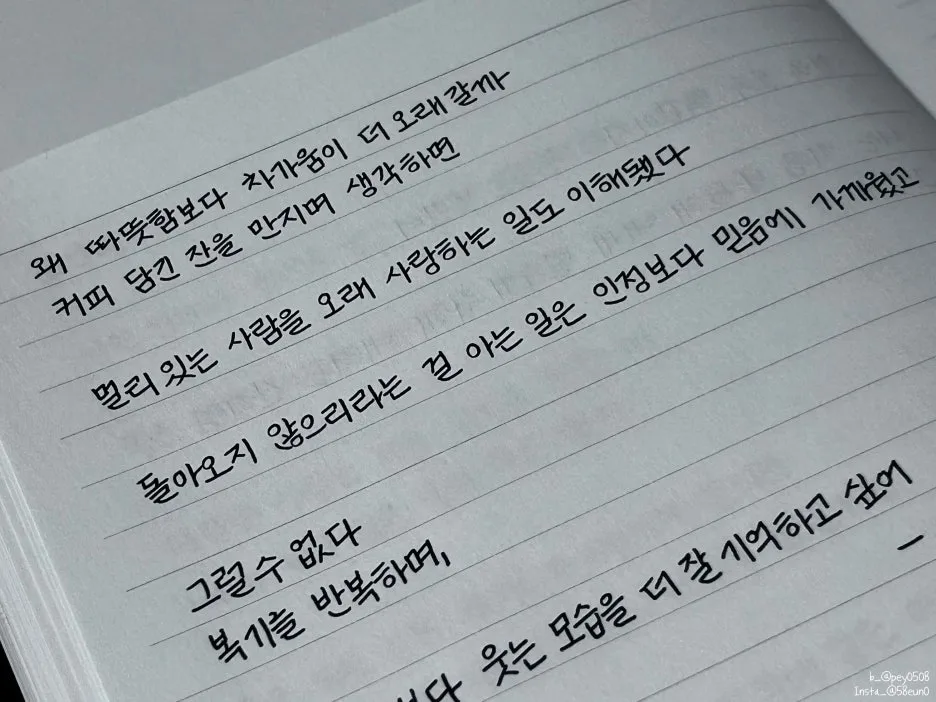 왜 따뜻함보다 차가움이 더 오래갈까
커피 담긴 잔을 만지며 생각하면
멀리 있는 사람을 오래 사랑하는 일도 이해됐다
돌아오지 않으리라는 걸 아는 일은 안정보다 믿음에 가까웠고
그럴 수 없다
복기를 반복하며,
보다 웃는 모습을 더 잘 기억하고 싶어
b_@pey0508
Insta_@58eun0